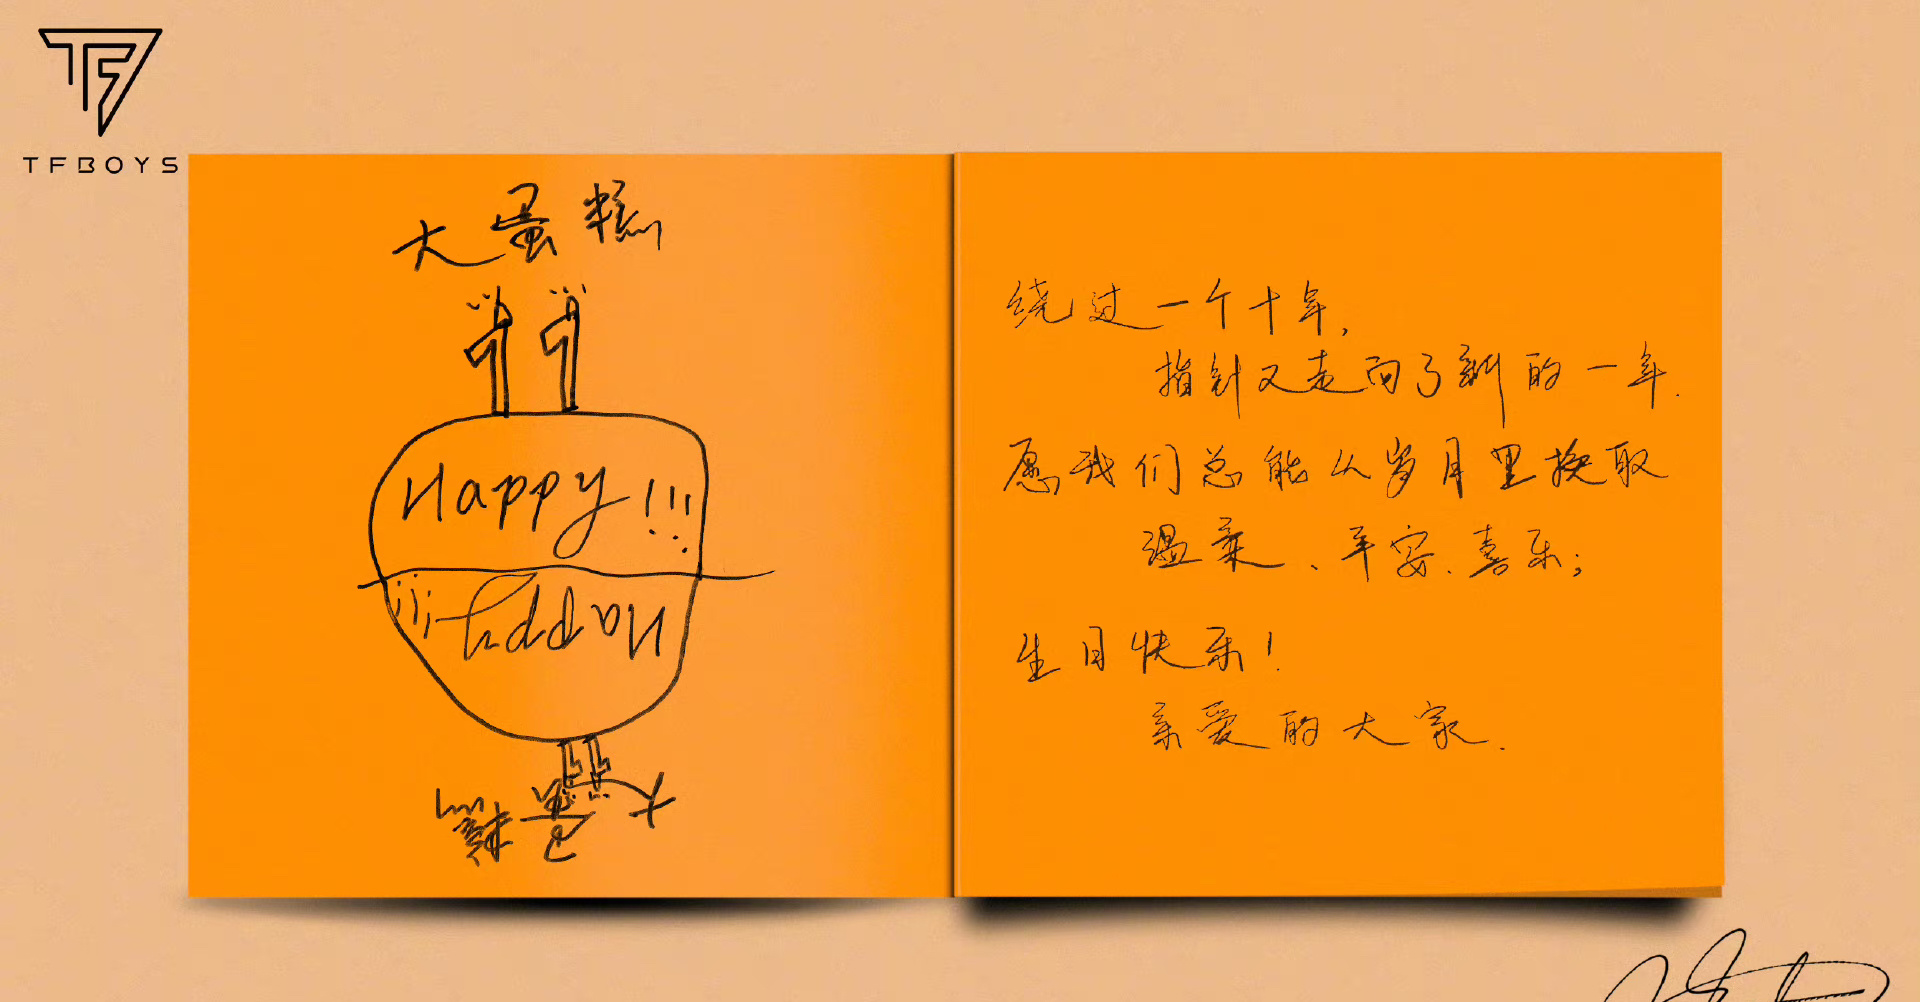 TFBOYS
大蛋糕
11
Happy!!!
Happy!!!
11
大蛋糕
绕过一个十年，
指针又走向了新的一年.
愿我们总能从岁月里换取
温柔、平安、喜乐；
生日快乐！
亲爱的大家.